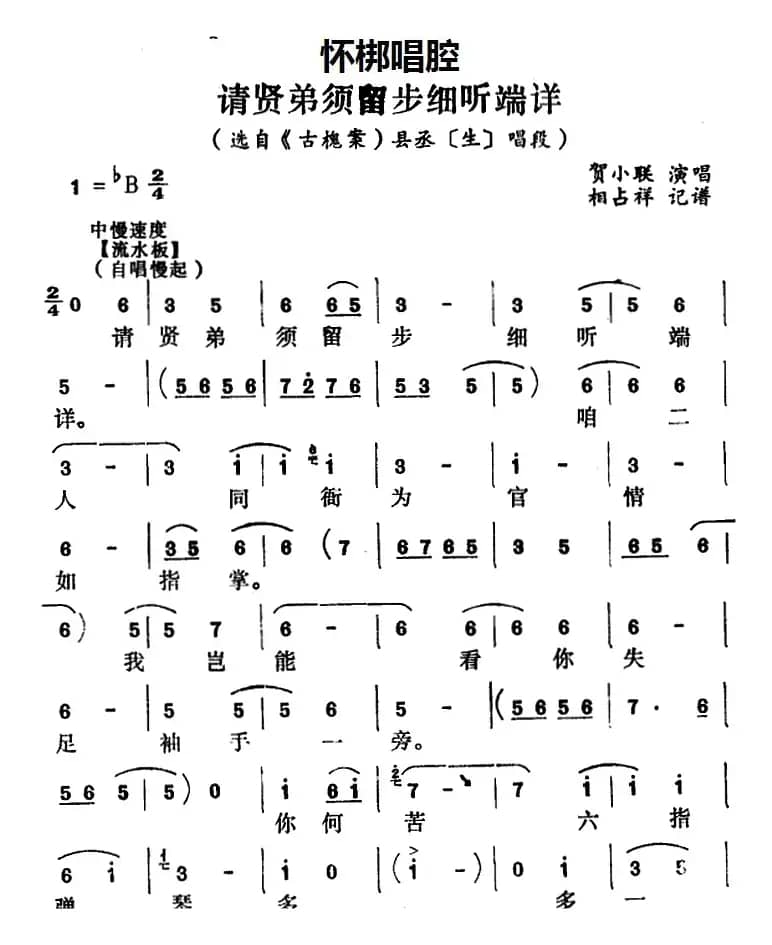 怀梆唱腔
请贤弟须留步细听端详
(选自《古槐案》县丞〔生〕唱段)
1 = ♭B 2/4
贺小联 演唱
相占祥 记谱
中慢速度
【流水板】
(自唱慢起)
2/4 0 6 | 3 5 | 6 6 5 | 3 - | 3 5 | 5 6 |
请 贤 弟 须 留 步 细 听 端
5 - | (5 6 5 6 | 7 2̇ 7 6 | 5 3 5 | 5) 6 | 6 6 |
详。 咱 二
3 - | 3 i̇ | i̇ i̇ | 3 - | i̇ - | 3 - |
人 同 衙 为 官 情
6 - | 3 5 6 | 6 (7 | 6 7 6 5 | 3 5 | 6 5 6 |
如 指 掌。
6) 5 | 5 7 | 6 - | 6 6 | 6 5 | 5 6 |
我 岂 能 看 你 失
6 - | 5 5 | 5 6 | 5 - | (5 6 5 6 | 7 · 6 |
足 袖 手 一 旁。
5 6 5 | 5) 0 | i̇ 6 i̇ | 7 - | 7 i̇ | i̇ i̇ |
你 何 苦 六 指
6 i̇ | 3 - | i̇ 0 | (i̇ - | 0 i̇ | 3 5 |
弹 琴 多 多 一